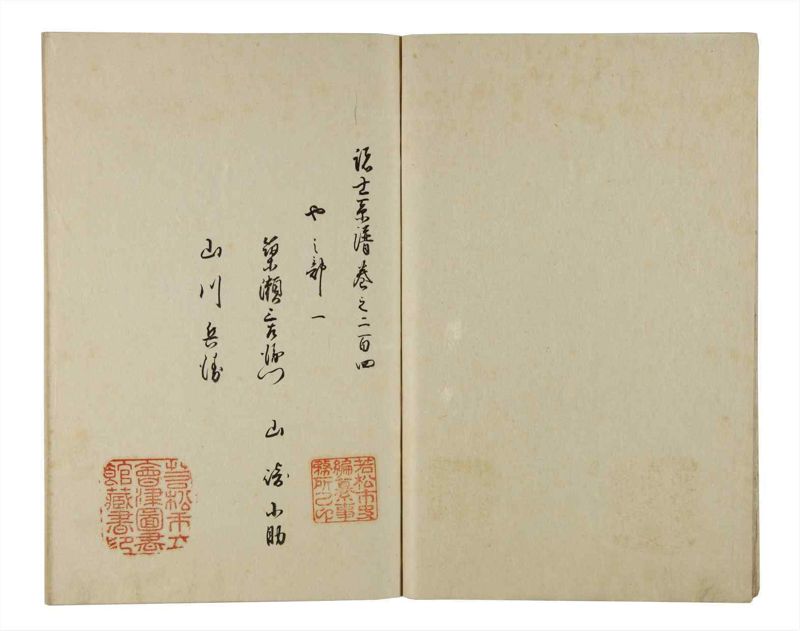 諸士系譜巻之二百四
や之部 一
簗瀬三左衛門 山崎小助
山川兵衛
若松市史
編纂事
務所之印
若松市立
會津圖書
館藏書印